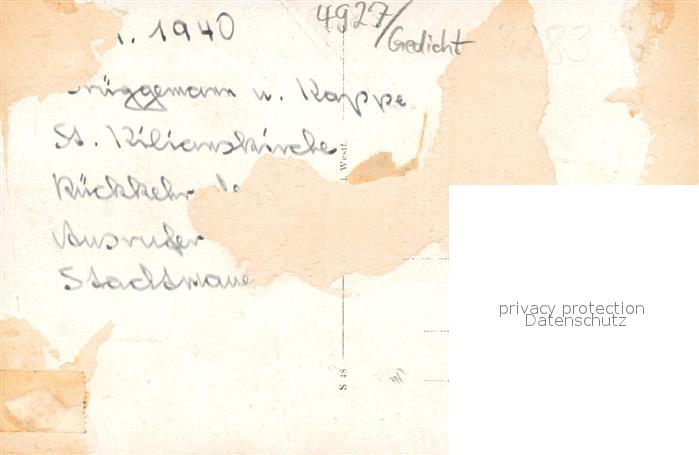 1940
4927/Gedicht
Brüggemann u. Kappe
St. Kilianskirche
Rückkehr
Ausrufer
Stadtmaue
i. Westf.
S 48
privacy protection
Datenschutz